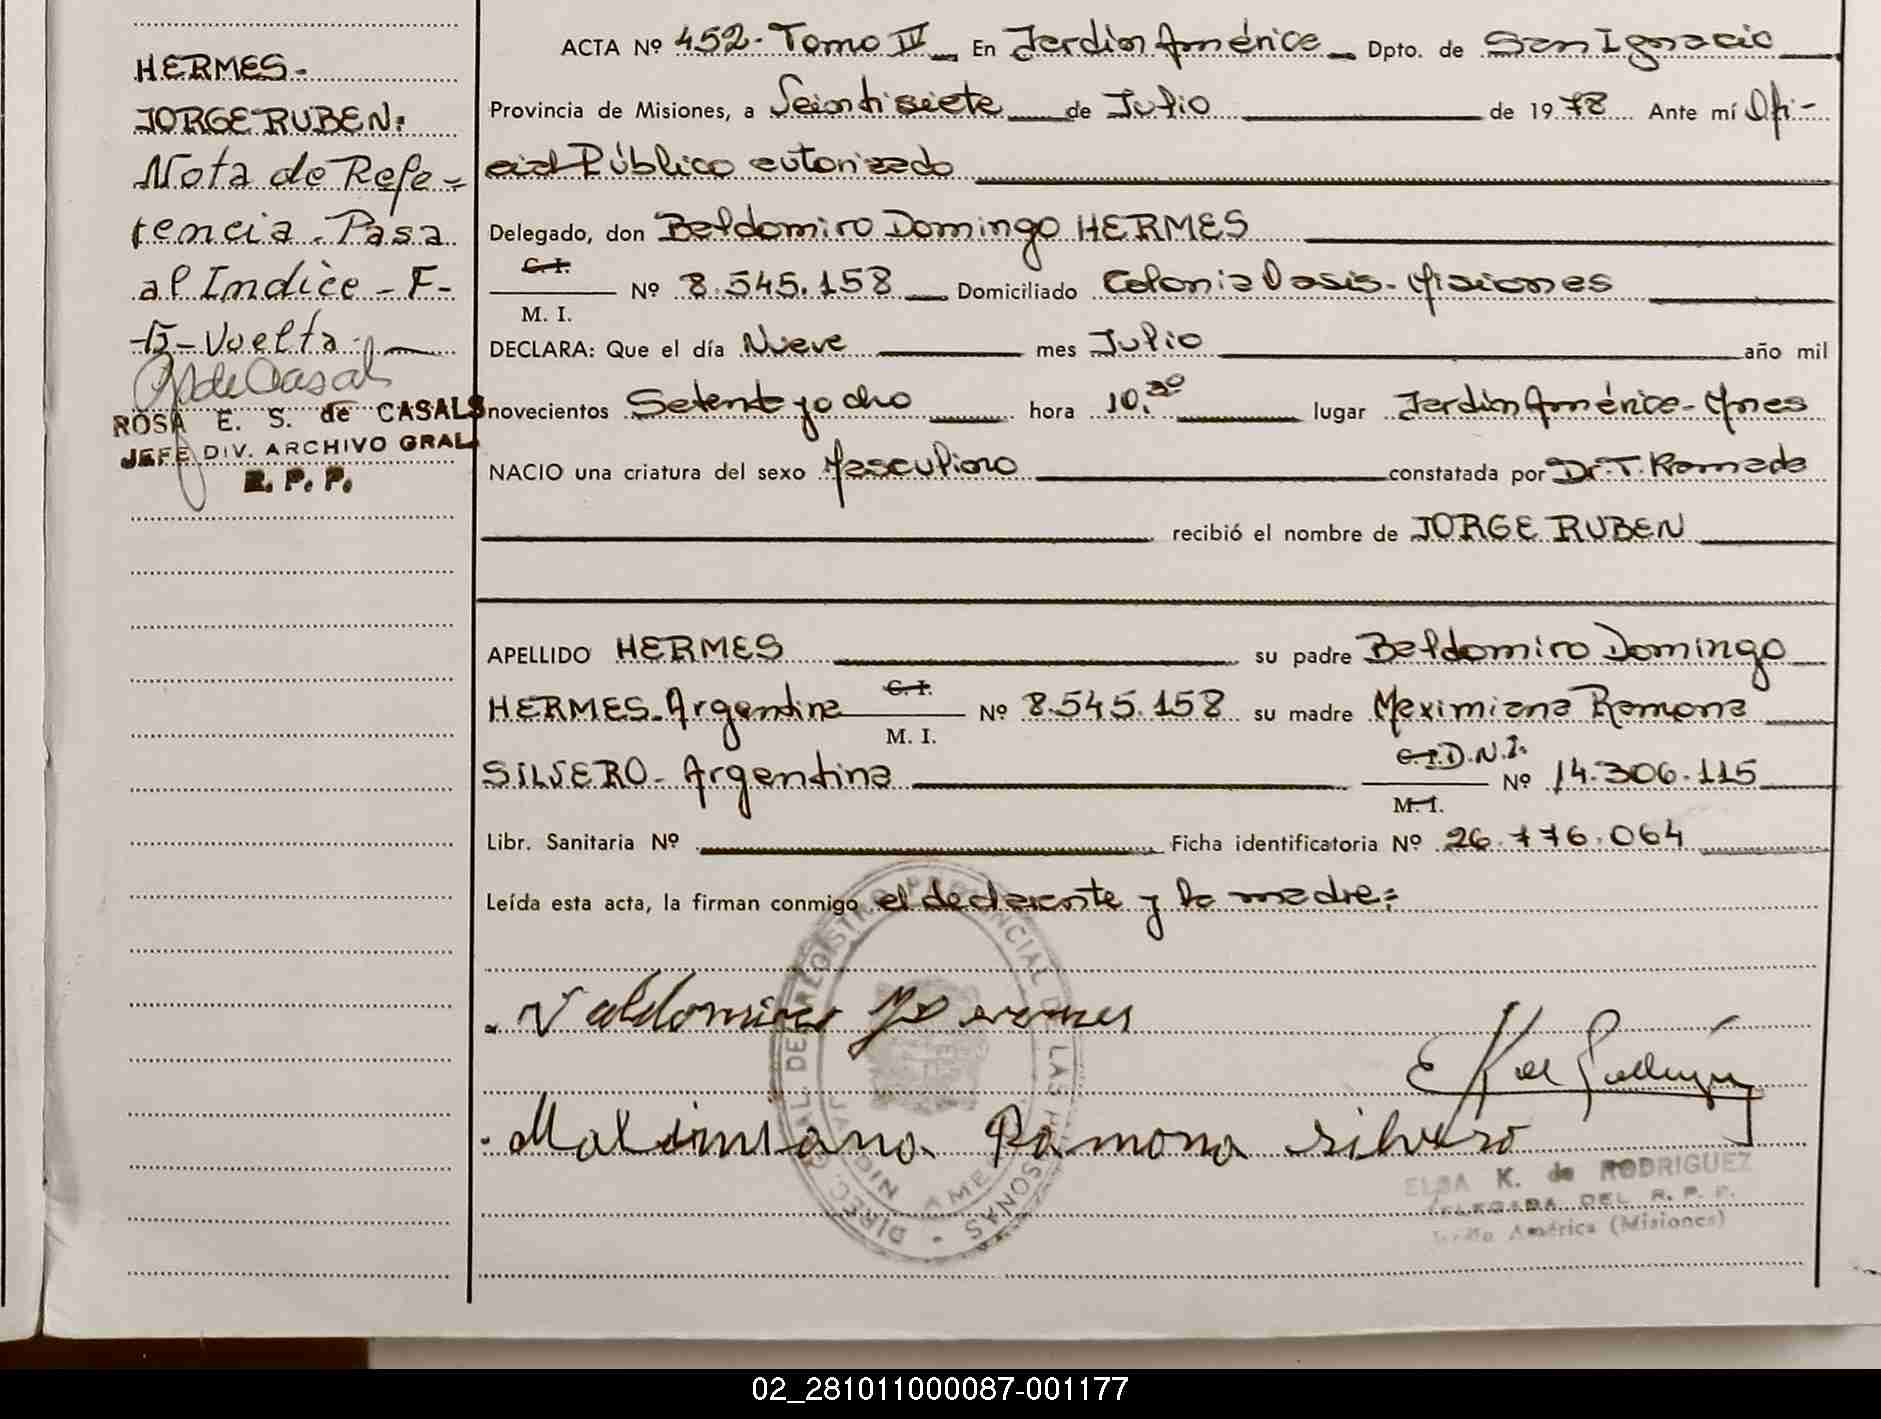 HERMES-
JORGE RUBEN:
Nota de Refe=
rencia. Pasa
al Indice - F-
15 - Vuelta.
ROSA E. S. de CASALS
JEFE DIV. ARCHIVO GRAL.
R. P. P.
ACTA Nº 452- Tomo IV En Jardín América Dpto. de San Ignacio
Provincia de Misiones, a Veintisiete de Julio de 1978 Ante mí Ofi-
cial Público autorizado
Delegado, don Baldomiro Domingo HERMES
C. I.
M. I. Nº 8.545.158 Domiciliado Colonia Oasis - Misiones
DECLARA: Que el día Nueve mes Julio año mil
novecientos Setenta y ocho hora 10,30 lugar Jardín América - Mnes
NACIO una criatura del sexo Masculino constatada por Dr. T. Ramada
recibió el nombre de JORGE RUBEN
APELLIDO HERMES su padre Baldomiro Domingo
HERMES - Argentina C. I. M. I. Nº 8.545.158 su madre Maximiana Ramona
SILVERO - Argentina C. I. D.N.I. M. I. Nº 14.306.115
Libr. Sanitaria Nº Ficha identificatoria Nº 26.776.064
Leída esta acta, la firman conmigo el declarante y la madre:
Valdomiro Hermes
Maximiana Ramona silvero
ELBA K. de RODRIGUEZ
DELEGADA DEL R. P. P.
Jardín América (Misiones)
DIREC. GRAL. DEL REGISTRO PROVINCIAL DE LAS PERSONAS
02_281011000087-001177